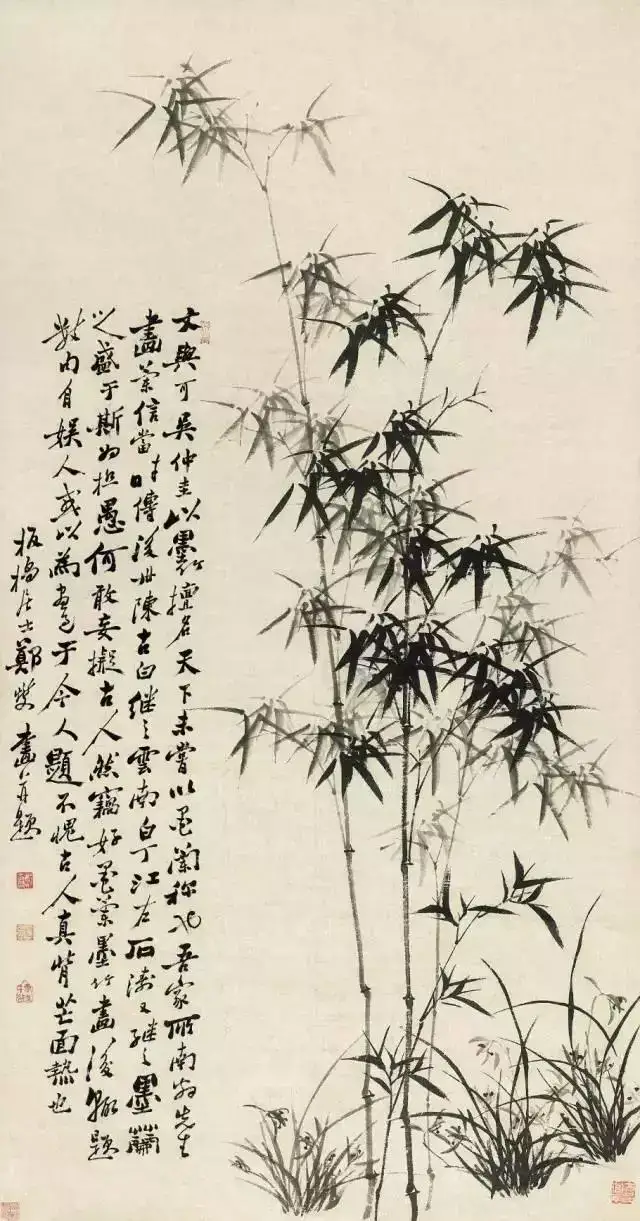 文與可吳仲圭以墨竹擅名天下未嘗以墨蘭称也吾家所南翁先生
畫蘭信當時傳後世陳古白继之雲南白丁江右石濤又继之墨蘭
之盛于斯为極愚何敢妄擬古人然竊好墨蘭墨竹畫後輒題
自娱人或以為于今人題不愧古人真背芒面熱也
板橋居士鄭燮畫并題